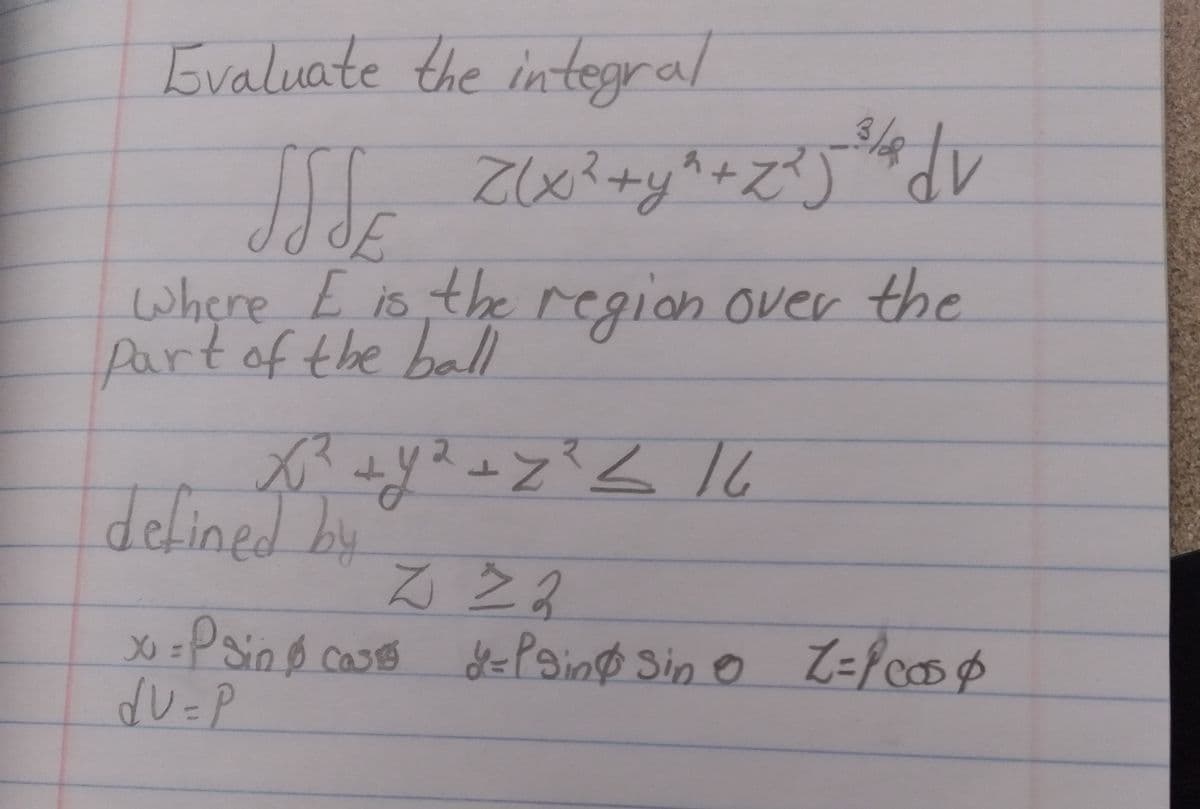 Evaluate the integral
∭_E z(x²+y²+z²)^-3/2 dV
where E is the region over the
part of the ball
x² + y² + z² ≤ 16
defined by
z ≥ 2
x = ρ sin φ cos θ y = ρ sin φ sin θ z = ρ cos φ
dV = ρ